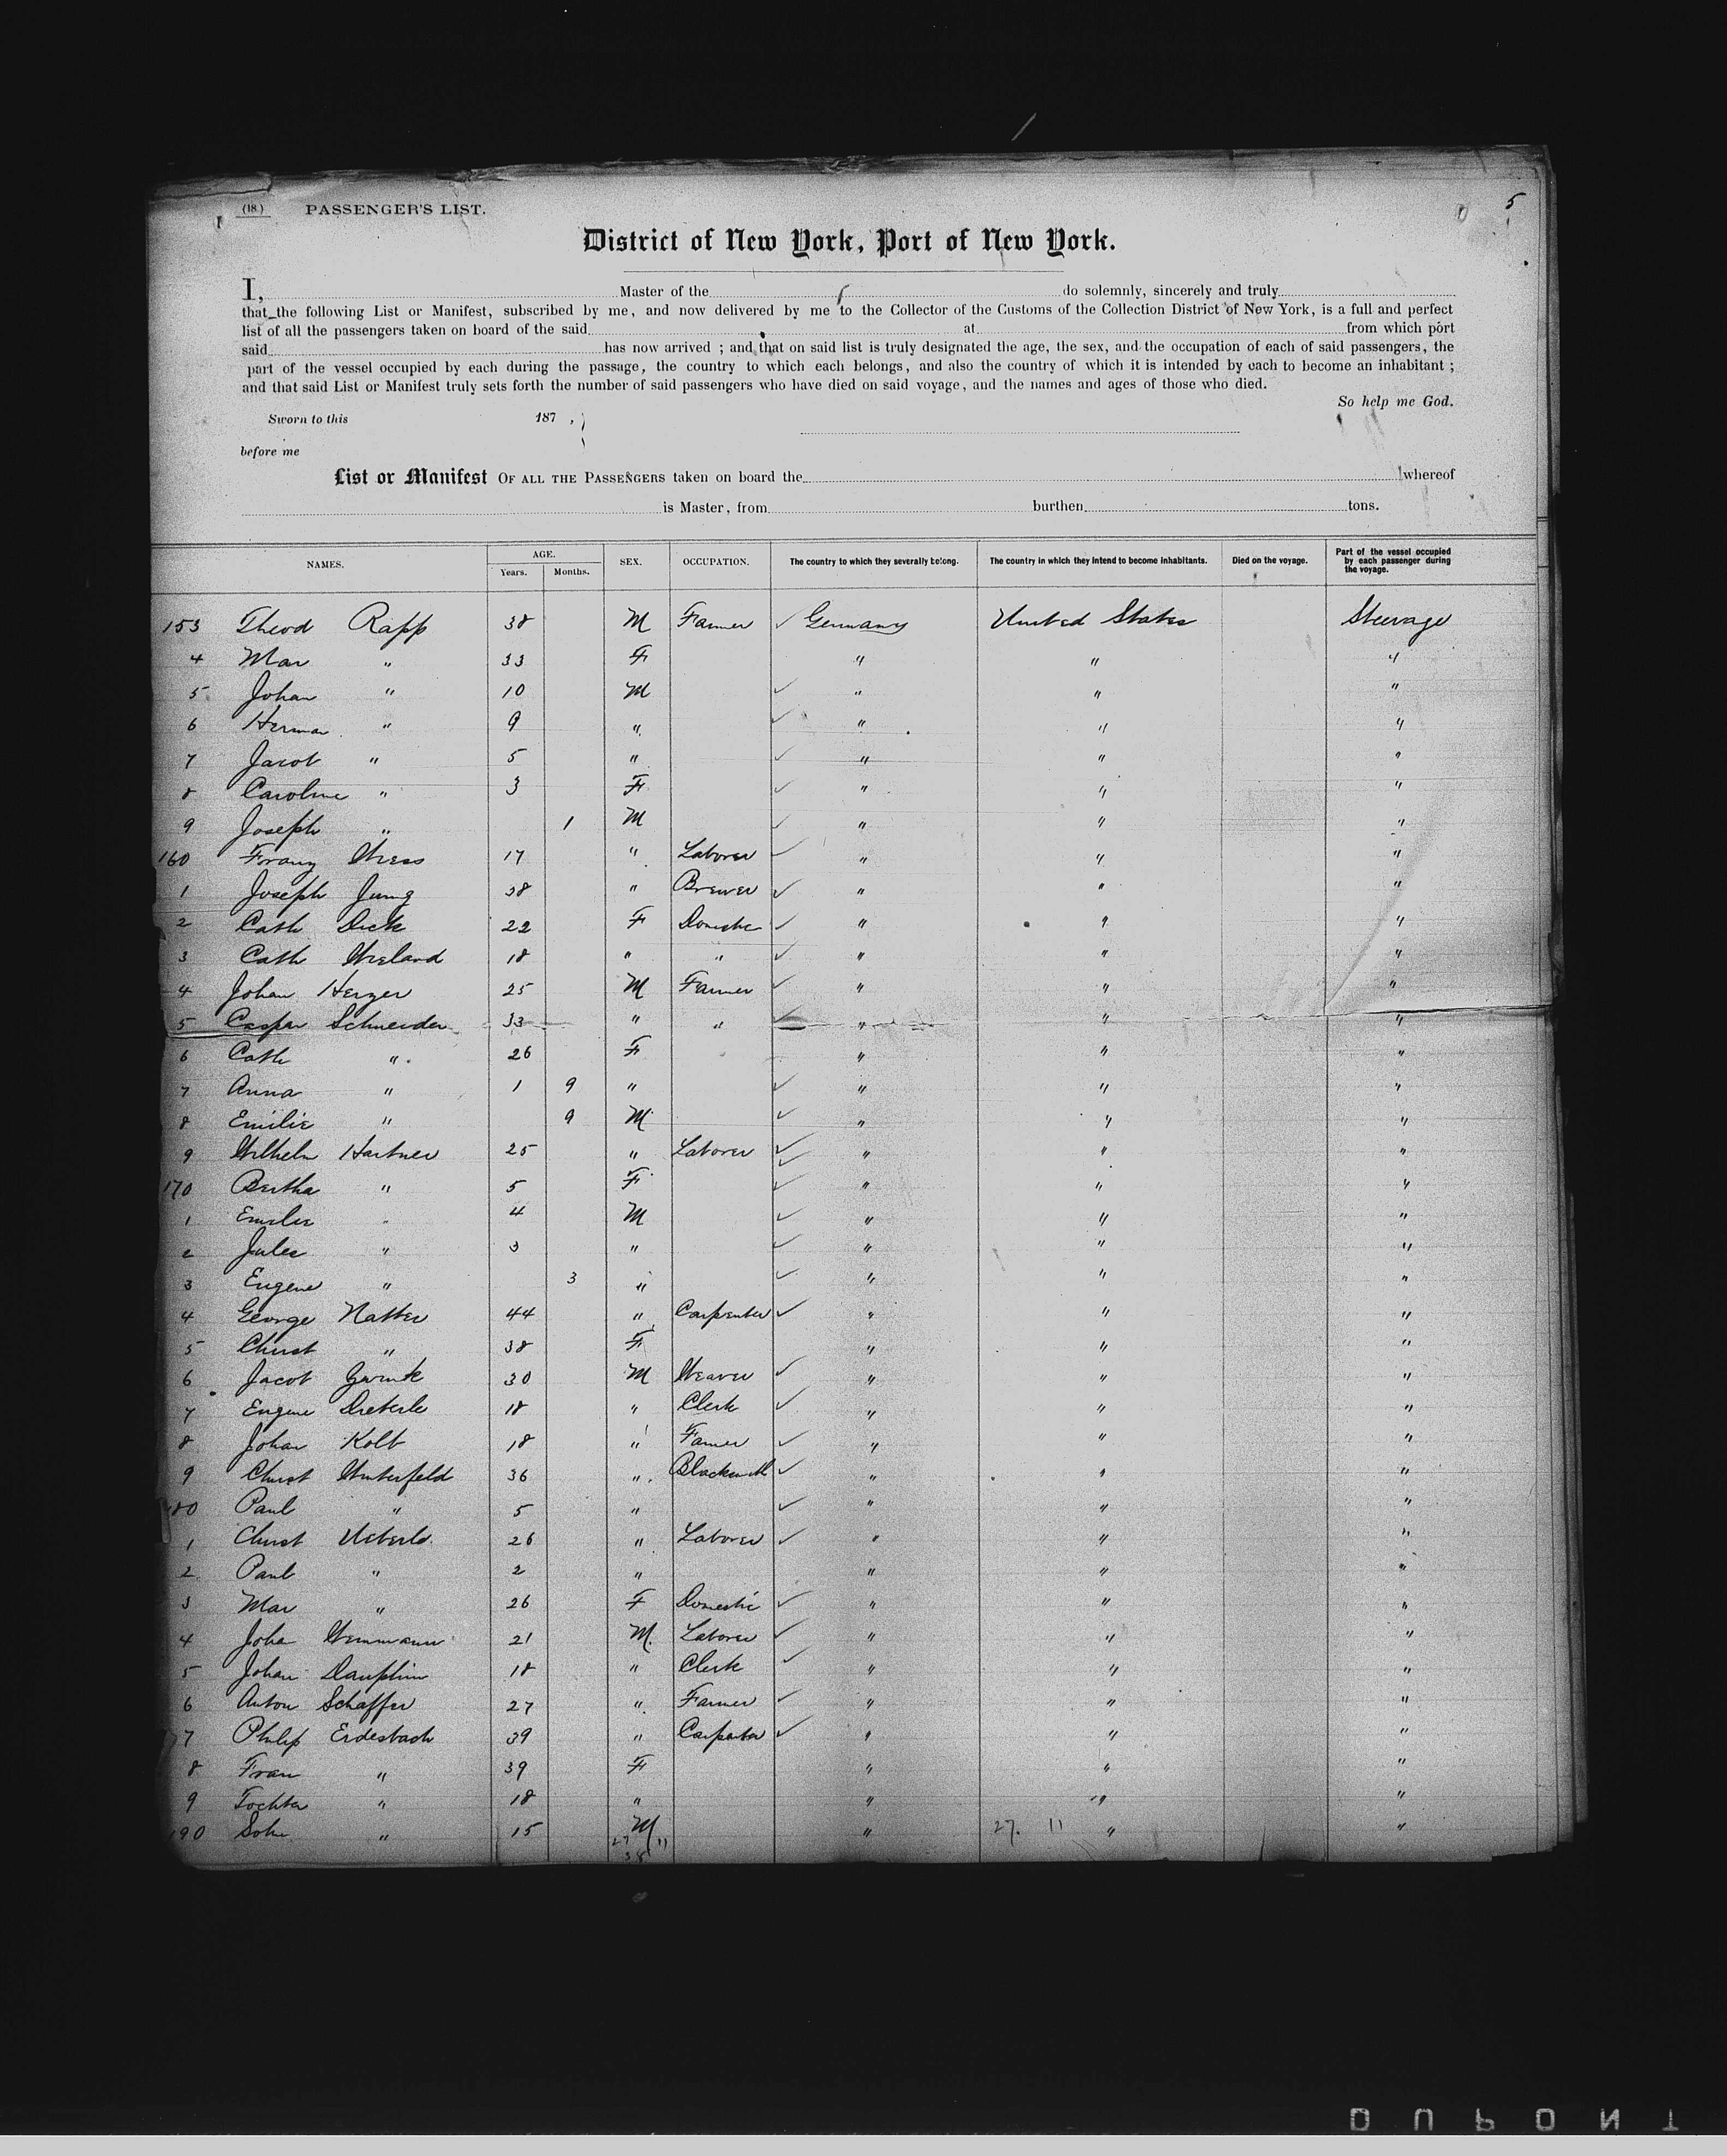 (18) PASSENGER'S LIST. 5
District of New York, Port of New York.
I, Master of the do solemnly, sincerely and truly
that the following List or Manifest, subscribed by me, and now delivered by me to the Collector of the Customs of the Collection District of New York, is a full and perfect
list of all the passengers taken on board of the said at from which port
said has now arrived ; and that on said list is truly designated the age, the sex, and the occupation of each of said passengers, the
part of the vessel occupied by each during the passage, the country to which each belongs, and also the country of which it is intended by each to become an inhabitant ;
and that said List or Manifest truly sets forth the number of said passengers who have died on said voyage, and the names and ages of those who died.
So help me God.
Sworn to this 187 ,
before me
List or Manifest OF ALL THE PASSENGERS taken on board the whereof
is Master, from burthen tons.
NAMES. AGE. Years. Months. SEX. OCCUPATION. The country to which they severally belong. The country in which they intend to become inhabitants. Died on the voyage. Part of the vessel occupied by each passenger during the voyage.
153 Theod Rapp 38 M Farmer ✓ Germany United States Steerage
4 Mar " 33 F " " "
5 Johan " 10 M ✓ " " "
6 Herman " 9 " ✓ " " "
7 Jacob " 5 " ✓ " " "
8 Caroline " 3 F ✓ " " "
9 Joseph " 1 M ✓ " " "
160 Franz Wress 17 " Laborer ✓ " " "
1 Joseph Jung 38 " Brewer ✓ " " "
2 Cath Dick 22 F Domestic ✓ " " "
3 Cath Wieland 18 " " ✓ " " "
4 Johan Herzer 25 M Farmer ✓ " " "
5 Caspar Schneider 33 " " ✓ " " "
6 Cath " 26 F " " "
7 Anna " 1 9 " ✓ " " "
8 Emilie " 9 M ✓ " " "
9 Wilhelm Hartner 25 " Laborer ✓ " " "
170 Bertha " 5 F ✓ " " "
1 Emilie " 4 M ✓ " " "
2 Jules " 3 " ✓ " " "
3 Eugene " 3 " ✓ " " "
4 George Natter 44 " Carpenter ✓ " " "
5 Christ " 38 F " " "
6 Jacob 30 M Weaver ✓ " " "
7 Eugene Dieterle 18 " Clerk ✓ " " "
8 Johan Kolb 18 " Farmer ✓ " " "
9 Christ Winterfeld 36 " Blacksmith ✓ " " "
180 Paul " 5 " ✓ " " "
1 Christ Ueberle 26 " Laborer ✓ " " "
2 Paul " 2 " " " "
3 Mar " 26 F Domestic ✓ " " "
4 Joha Wemmann 21 M. Laborer ✓ " " "
5 Johan Dauphin 18 " Clerk ✓ " " "
6 Anton Schaffer 27 " Farmer ✓ " " "
7 Philip Erdesbach 39 " Carpenter ✓ " " "
8 Frau " 39 F " " "
9 Tochter " 18 " " " "
190 Sohn " 15 M " 27. 11 " "
27 11
38
DUPONT